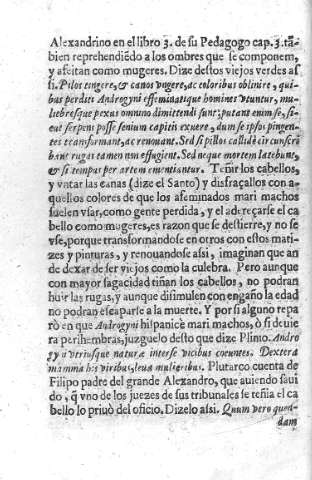 Alexandrino en el libro 3. de su Pedagogo cap. 3. tã-
bien reprehendiẽdo a los ombres que se componem,
y afeitan como mugeres. Dize destos viejos verdes as
si. Pilos tingere, & canos vngere, ac coloribus oblinire, qui-
bus perdite Androgyni effeminatique homines vtuntur, mu-
liebresque pexus omnino dimittendi sunt: putant enim se, si-
cut serpens posse senium capitis exuere, dum se ipsos pingen-
tes transformant, ac renouant. Sed si pillos callidè circunscri
bant rugas tamen non effugient. Sed neque mortem latebunt,
& si tempus per artem ementiantur. Teñir los cabellos,
y vntar las canas (dize el Santo) y disfraçallos con a-
quellos colores de que los afeminados mari machos
suelen vsar, como gente perdida, y el adereçarse el ca
bello como mugeres, es razon que se destierre, y no se
vse, porque transformandose en otros con estos mati-
zes y pinturas, y renouandose assi, imaginan que an
de dexar de ser viejos como la culebra. Pero aunque
con mayor sagacidad tiñan los cabellos, no podran
huir las rugas, y aunque disimulen con engaño la edad
no podran escaparse a la muerte. Y por si alguno repa
rò en que Androgyni hispanicè mari machos, ò si deuie
ra ser hembras, juzguelo desto que dize Plinio. Andro
gy a vtriusque naturæ inter se vicibus coeuntes. Dextera
mamma his virilis, leua muliebris. Plutarco cuenta de
Filipo padre del grande Alexandro, que auiendo saui
do, q̃ vno de los juezes de sus tribunales se teñia el ca
bello lo priuò del oficio. Dizelo assi. Quum vero quen-
dam